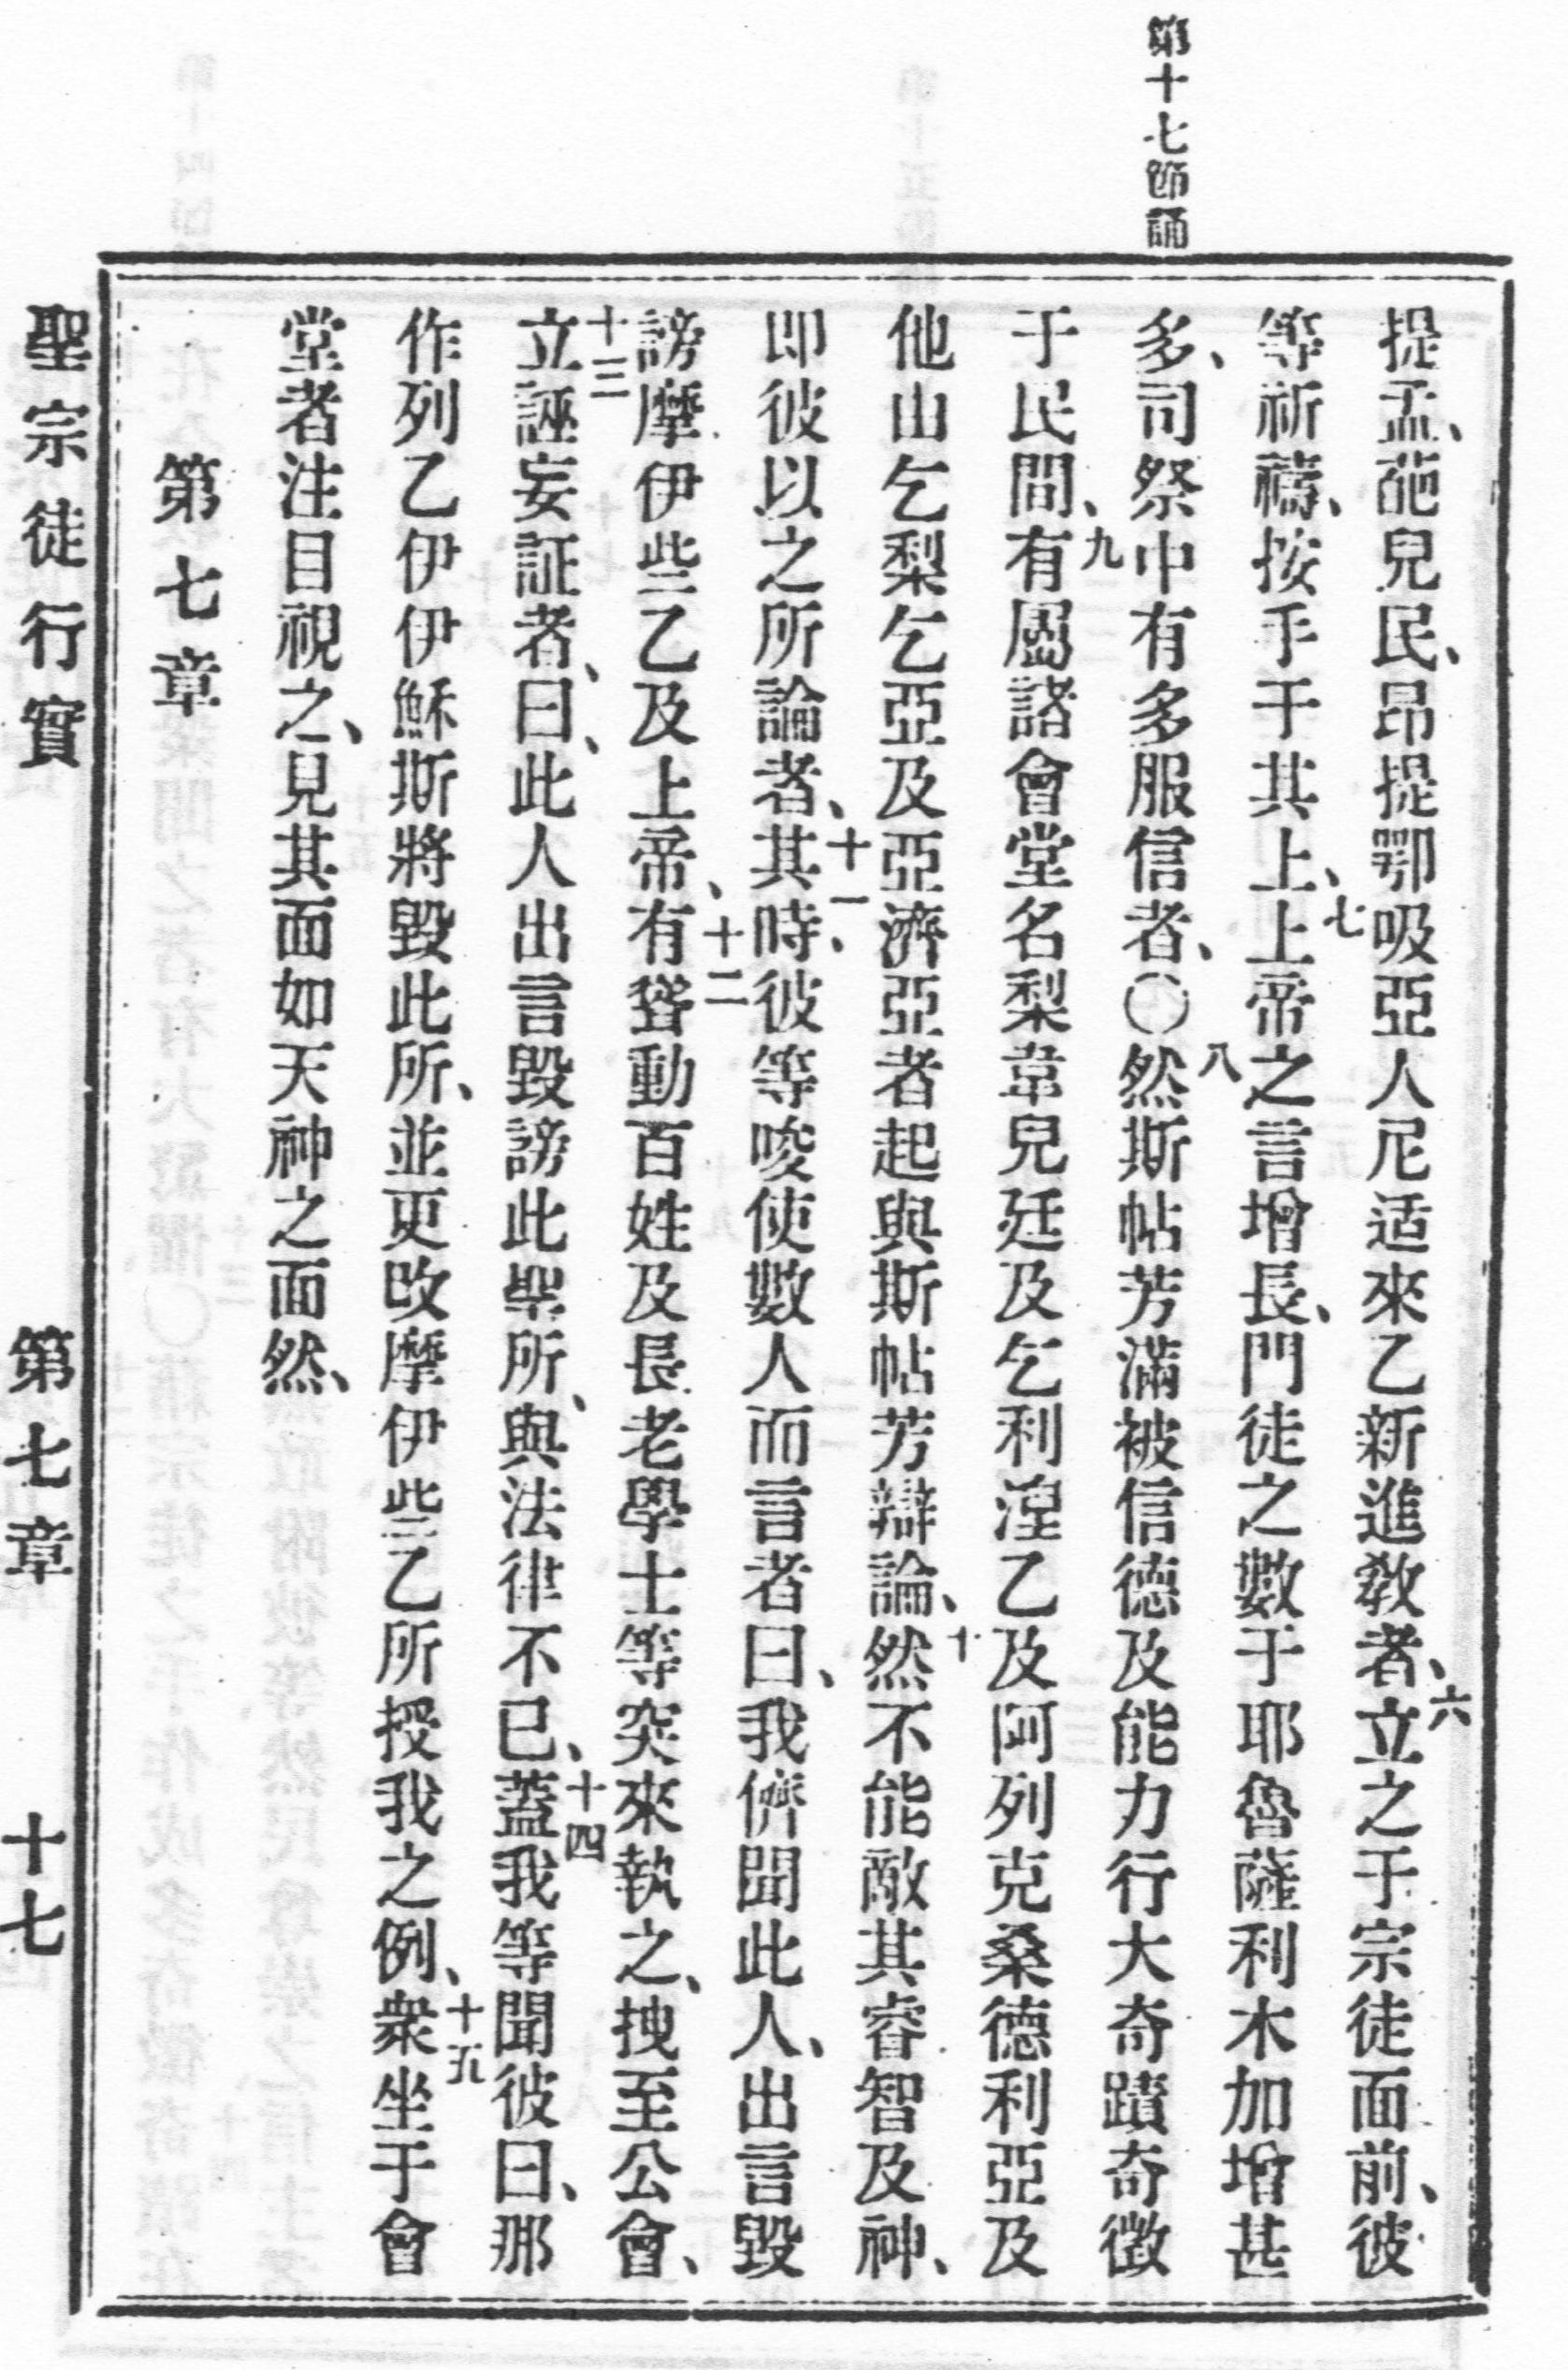 第十七節誦
提孟、葩兒民、昂提鄂吸亞人尼适來乙新進教者、六立之于宗徒面前、彼
等祈禱、按手于其上、七上帝之言增長、門徒之數于耶魯薩利木加增甚
多、司祭中有多服信者、〇八然斯帖芳滿被信德及能力行大奇蹟奇徵
于民間、九有屬諸會堂名梨韋兒廷及乞利湼乙及阿列克桑德利亞及
他山乞梨乞亞及亞濟亞者起與斯帖芳辯論、十然不能敵其睿智及神、
即彼以之所論者、十一其時、彼等唆使數人而言者曰、我儕聞此人、出言毀
謗摩伊些乙及上帝、十二有聳動百姓及長老學士等突來執之、拽至公會、
十三立誣妄証者、曰、此人出言毀謗此聖所、與法律不已、十四蓋我等聞彼曰、那
作列乙伊伊穌斯將毀此所、並更改摩伊些乙所授我之例、十五衆坐于會
堂者注目視之、見其面如天神之面然、
第七章
聖宗徒行實 第七章 十七